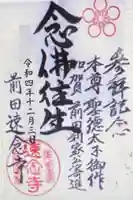 参拝記念
本尊 聖徳太子御作
念佛往生
加賀 前田利家公寄進
令和四年十一月三日
前田 速念寺
速念寺